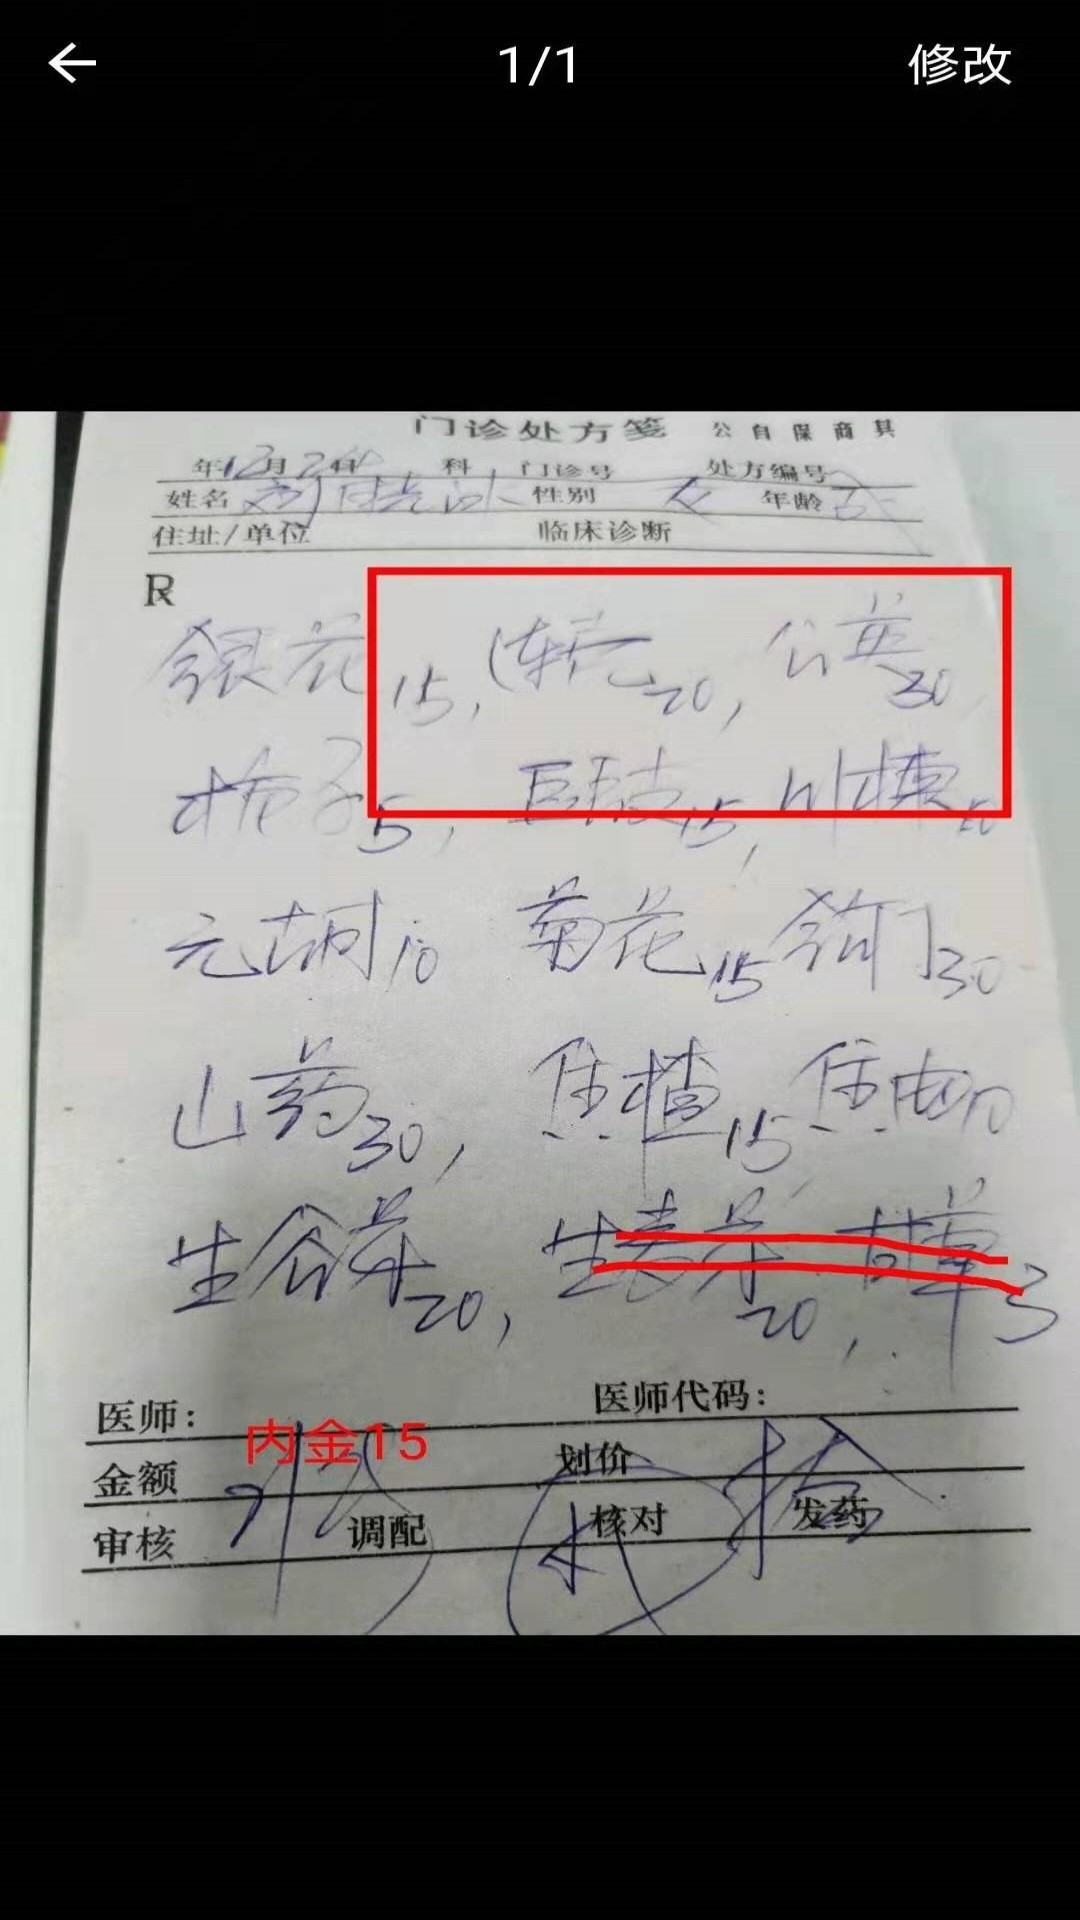 1/1 修改
门诊处方笺 公 自 保 商 其
年12月24 科 门诊号 处方编号
姓名 刘 性别 女 年龄
住址/单位 临床诊断
R
银花15, 连壳20, 公英30,
栀子5, 15, 川楝10
元胡10 菊花15 钩丁30
山药30, 焦楂15 焦曲10
生谷芽20, 生麦芽20, 甘草3
医师: 医师代码:
内金15
金额 划价
审核 调配 核对 发药